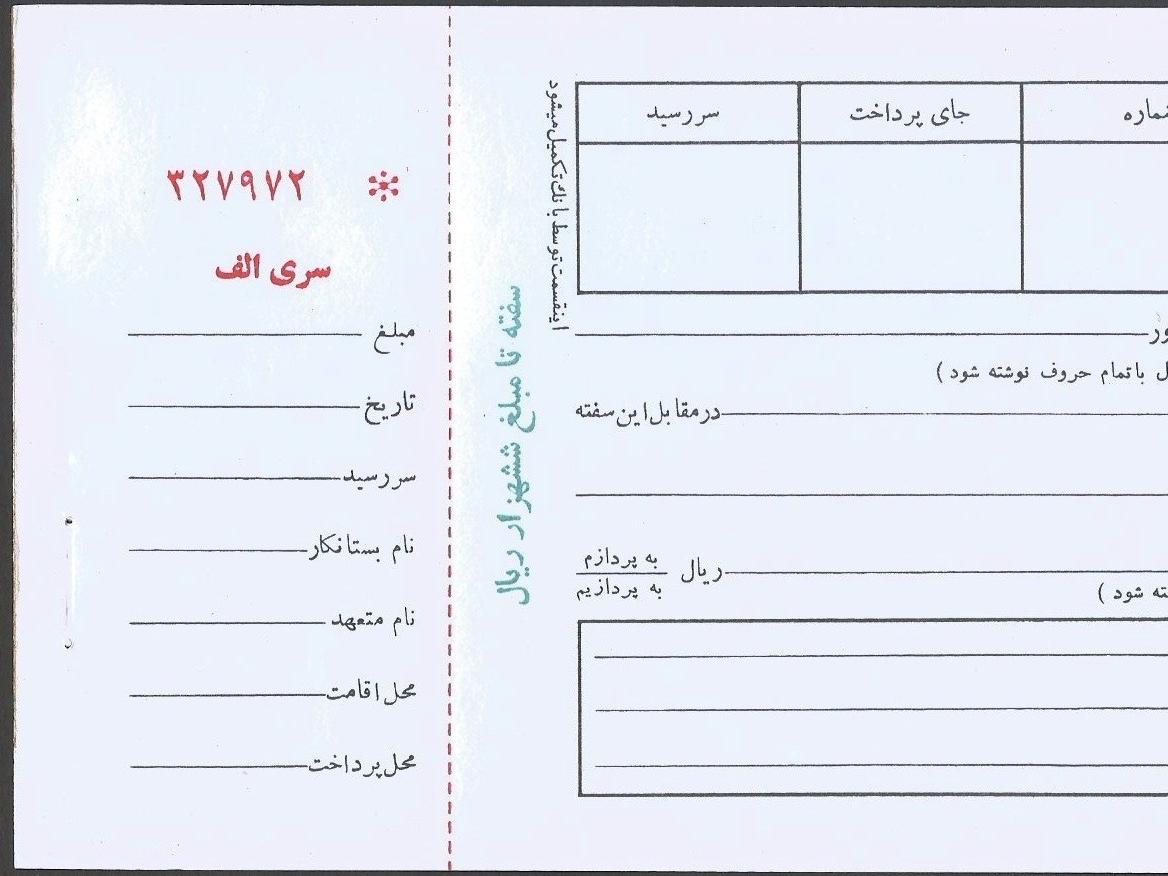 ۳۲۷۹۷۲
سری الف
مبلغ
تاریخ
سررسید
نام بستانکار
نام متعهد
محل اقامت
محل پرداخت
سفته تا مبلغ ششهزار ریال
اینقسمت توسط بانک تکمیل میشود
جای پرداخت
سررسید
باتمام حروف نوشته شود )
درمقابل این سفته
ریال
به پردازم
به پردازیم
شود )